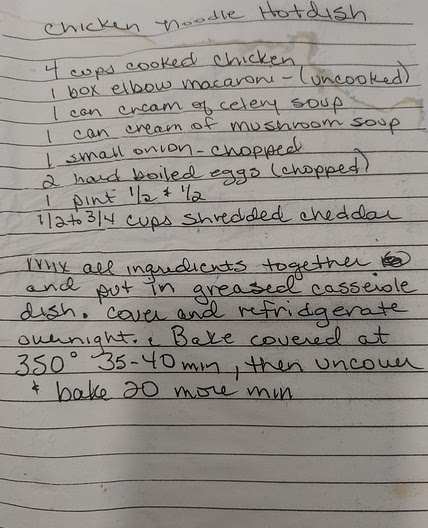 Chicken Noodle Hotdish
4 cups cooked chicken
1 box elbow macaroni - (uncooked)
1 can cream of celery soup
1 can cream of mushroom soup
1 small onion - chopped
2 hard boiled eggs (chopped)
1 pint 1/2 & 1/2
1/2 to 3/4 cups shredded cheddar
Mix all ingredients together
and put in greased casserole
dish. cover and refridgerate
overnight. Bake covered at
350° 35-40 min, then uncover
& bake 20 more min